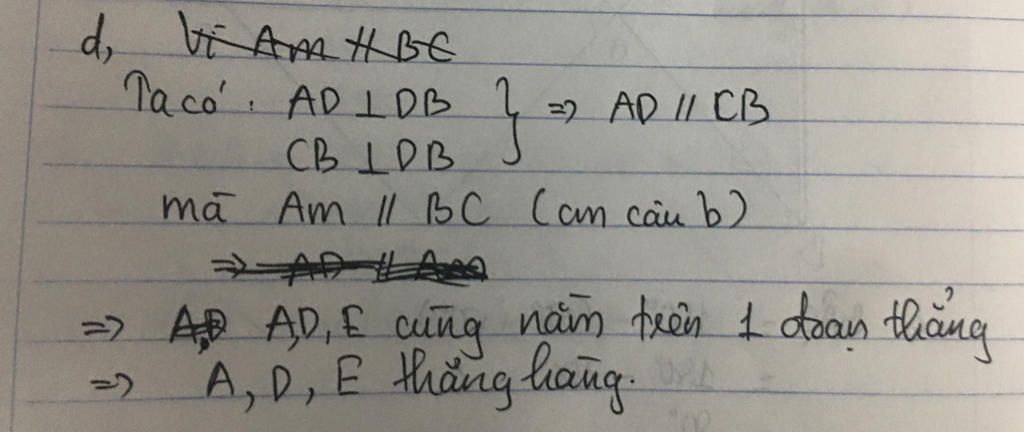 d, Vì Am // BC
Ta có: AD ⊥ DB } => AD // CB
CB ⊥ DB
mà Am // BC (cm câu b)
=> AD // Am
=> A,D A,D,E cùng nằm trên 1 đoạn thẳng
=> A, D, E thẳng hàng.